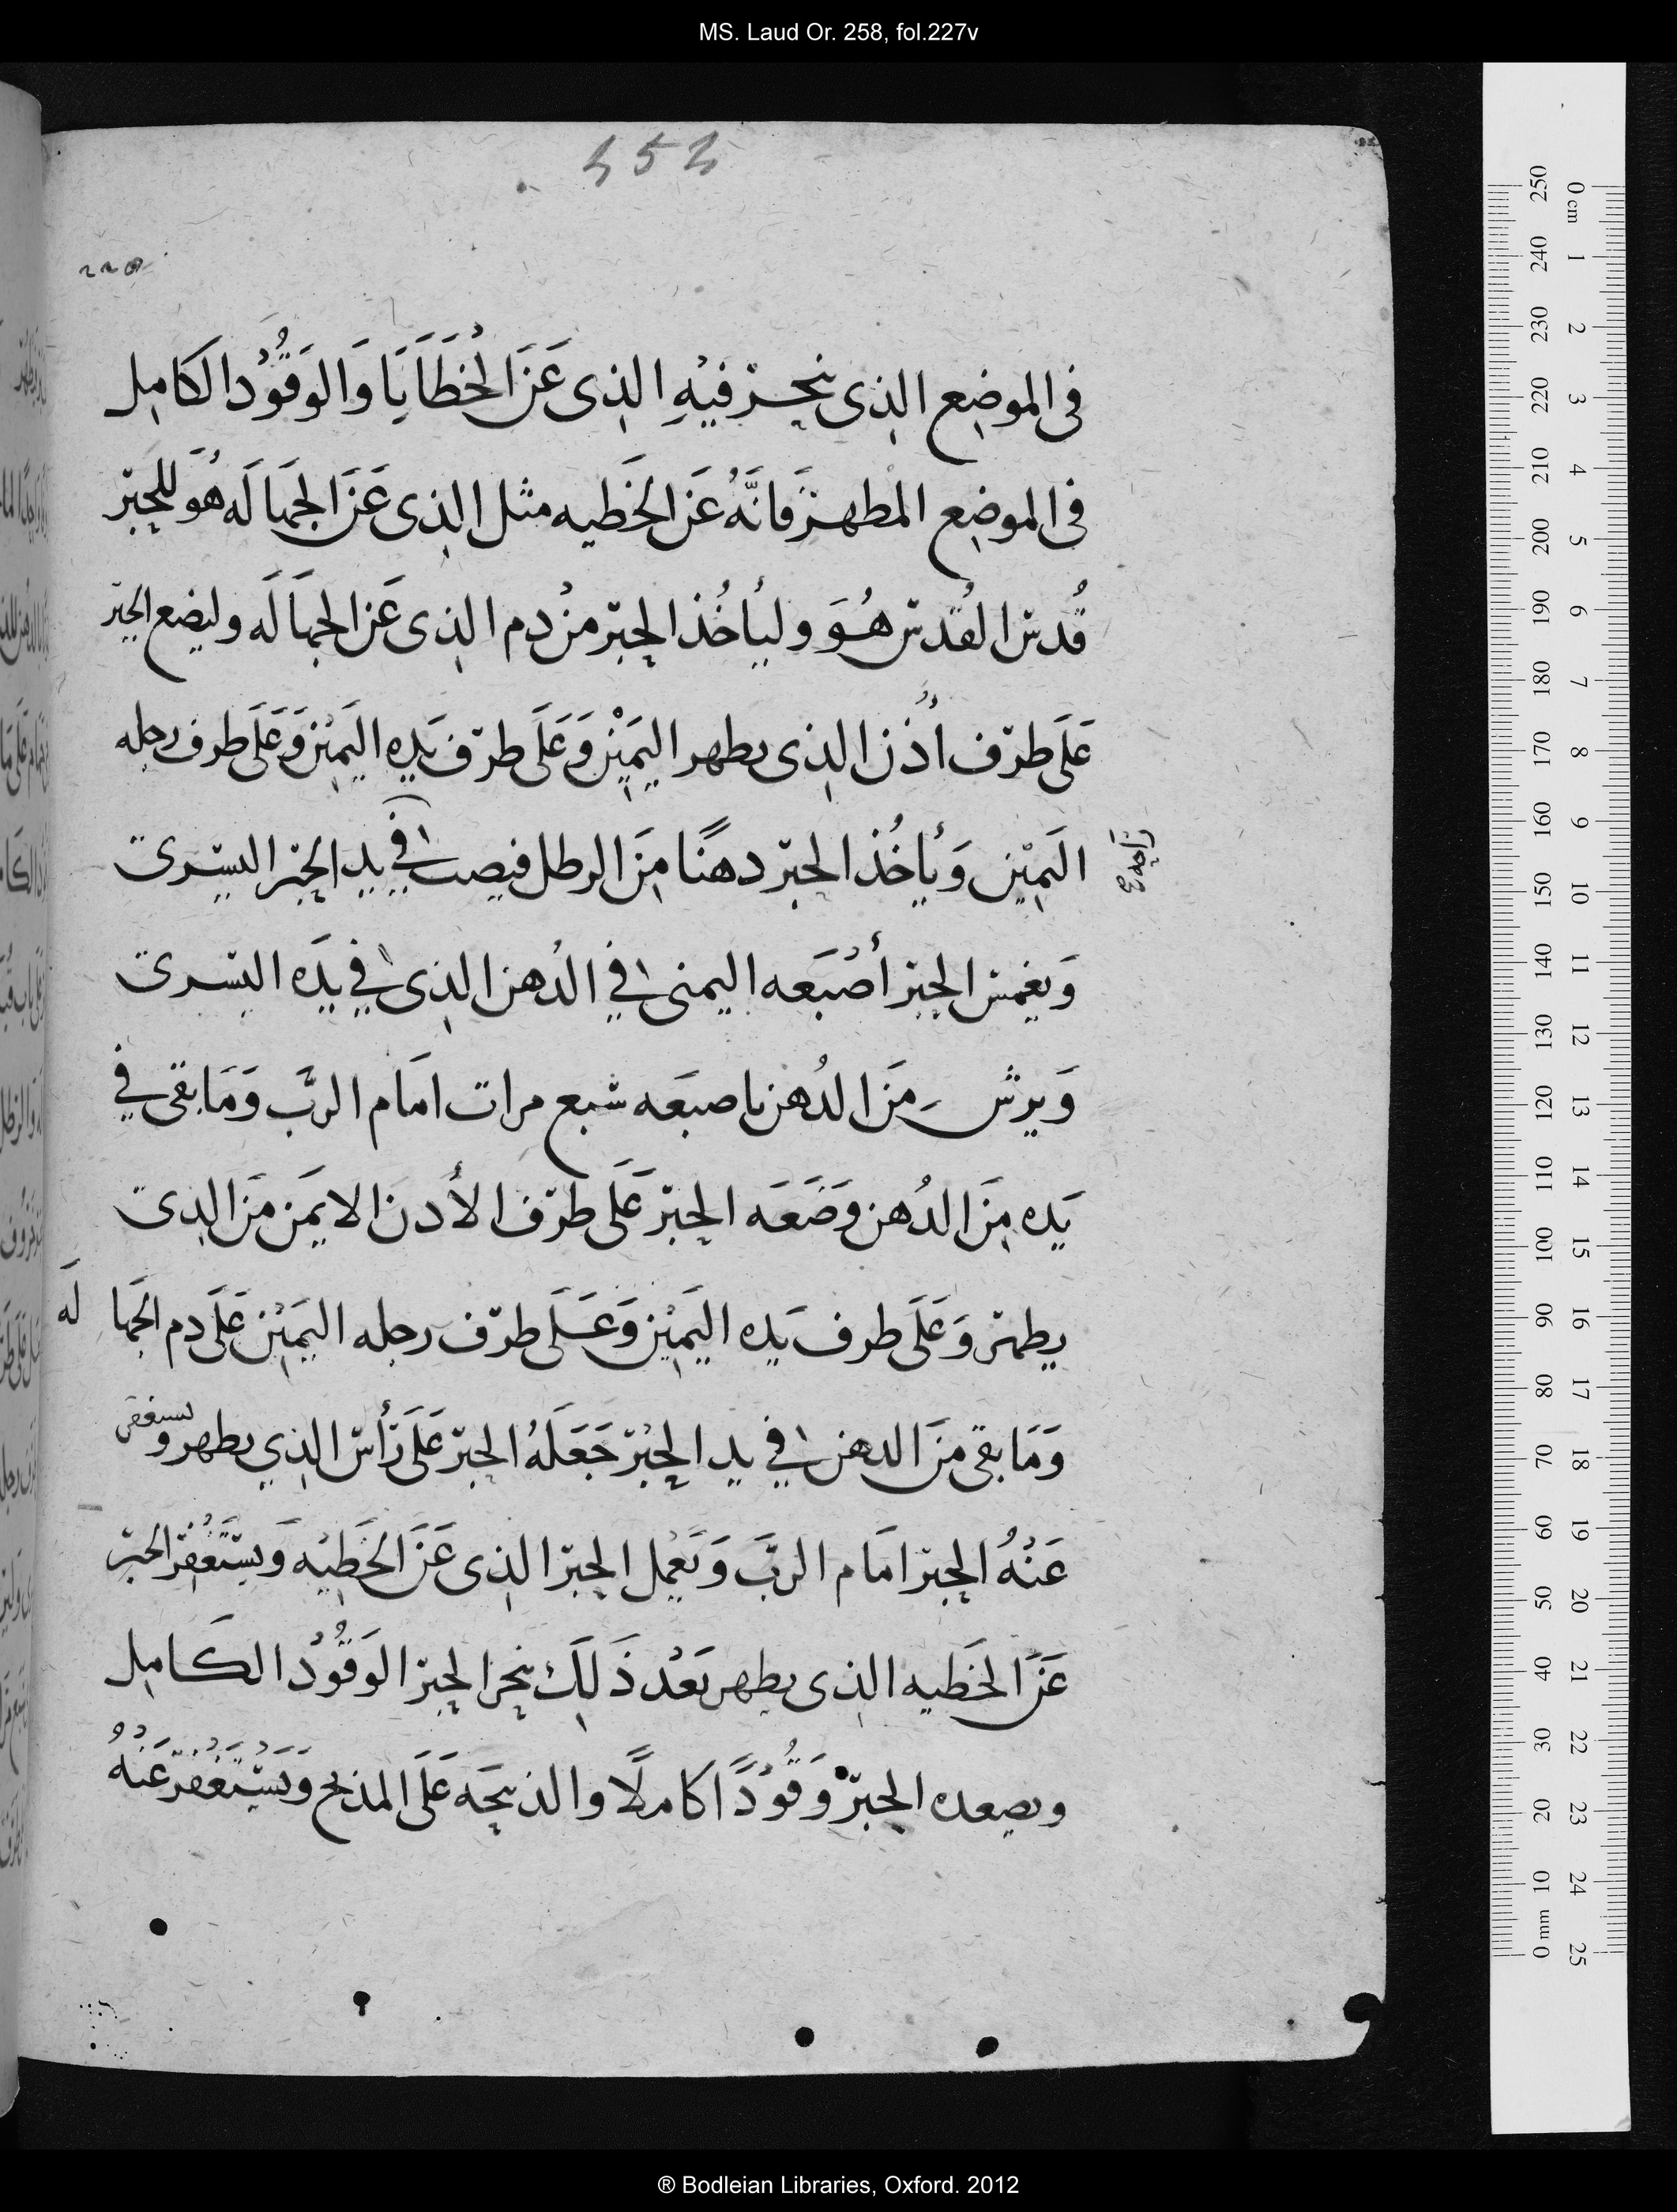 MS. Laud Or. 258, fol.227v
في الموضع الذى ينحر فيْهِ الذى عَنَ الخُطَايَا وَالوَقُوُد الكَامِل
في الموضع المطهر فَانَّهُ عَن الخَطيه مثل الذى عَنَ الجهَالَه هُوَ للحِبْر
قُدسْ القُدسْ هُوَ وليأخُذ الحِبْر منْ دم الذى عَن الجهَالَه وليضع الحِبْر
عَلَى طرَف اُذُن الذى يطهر اليَمِيْن وَعَلَى طرَف يَدِه اليَمِيْن وَعَلَى طرف رجله
اليَمِيْن وَيأخُذ الحبْر دهنًا مِنَ الرطل فيصب في يد الحبْر اليسْرى
وَيغمس الحِبْر أصْبَعه اليمنى في الدُهن الذى في يَدَه اليسْرى
وَيرشْ مِنَ الدُهن باصبَعه سْبع مرات امَام الربَّ وَمَا بقى في
يَده مِنَ الدُهن وَضَعَه الحِبْر عَلَى طرَف الأدن الايمَن مِنَ الذى
يطهر وَعَلَى طرف يَده اليَمِيْن وَعَلَى طرَف رجله اليَمِيْن عَلَى دم الجَهالَه
وَمَا بقى مِنَ الدهن في يد الحِبْر جَعَلَهُ الحِبْر عَلَى رَأسْ الذي يطهر ويستغفر
عَنْهُ الحِبْر امَام الربَّ وَيَعْمِل الحِبْر الذى عَنَ الخَطِيْه وَيسْتَغْفِر الحبْر
عَنَ الخَطيه الذى يطهر بَعْد ذَلِكَ ينحر الحِبْر الوَقُوُد الكَامِل
ويصعده الحِبْر وَقُوُدًا كاملًا والذبيحَه عَلَى المذبح وَيَسْتَغْفُر عَنْهُ
0 cm 1 2 3 4 5 6 7 8 9 10 11 12 13 14 15 16 17 18 19 20 21 22 23 24 25
250 240 230 220 210 200 190 180 170 160 150 140 130 120 110 100 90 80 70 60 50 40 30 20 10 0 mm
® Bodleian Libraries, Oxford. 2012